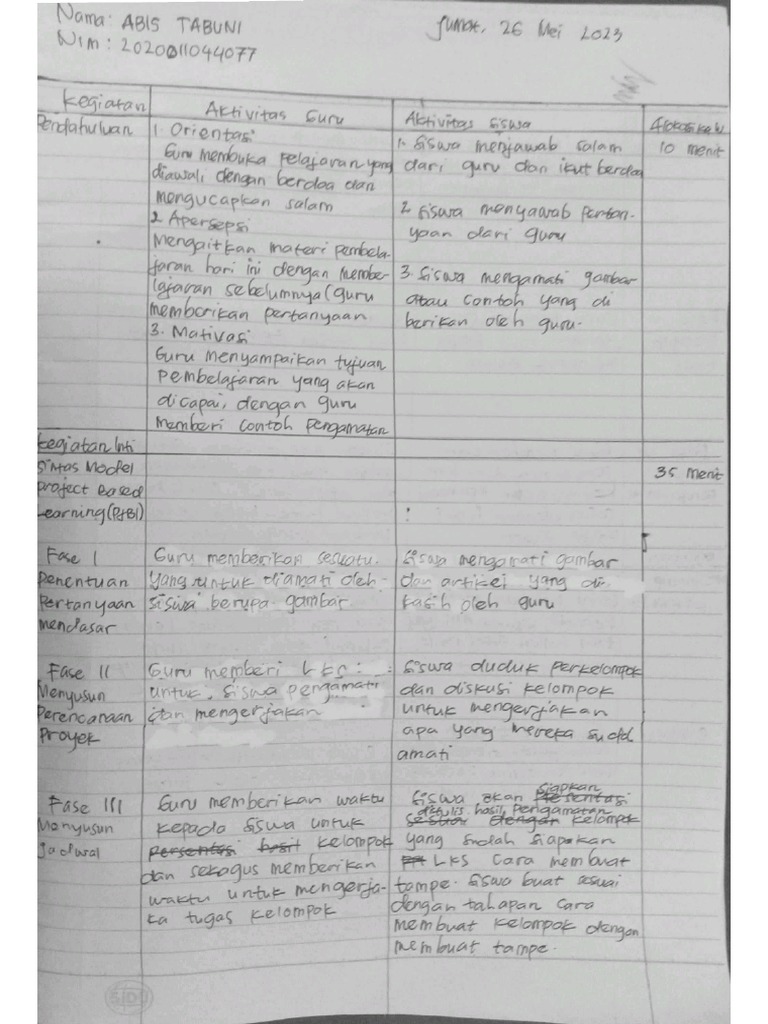 Nama: ABIS TABUNI
Nim: 20200011044077
Jumat, 26 Mei 2023
Kegiatan
Aktivitas Guru
Aktivitas Siswa
Pendahuluan
1. Orientasi
Guru membuka Pelajaran yang
diawali dengan berdoa dan
mengucapkan salam
2. Apersepsi
Mengaitkan materi Pembela-
jaran hari ini dengan membe-
lajaran sebelumnya (guru
memberikan pertanyaan
3. Mativasi
Guru menyampaikan tujuan
Pembelajaran yang akan
dicapai, dengan guru
memberi contoh pengamatan
1. Siswa menjawab salam
dari guru dan ikut berdoa
2. Siswa menyawab pertan-
yaan dari guru
3. Siswa mengamati gambar
atau contoh yang di
berikan oleh guru.
10 menit
Kegiatan Inti
Sintas Model
Project Based
Learning (PjBl)
35 menit
Fase I
Penentuan
Pertanyaan
mendasar
Guru memberikan sesuatu
yang untuk diamati oleh
siswa berupa gambar
Siswa mengamati gambar
dan artikel yang di
kasih oleh guru
Fase II
Menyusun
Perencanaan
Proyek
Guru memberi LKS
untuk siswa pengamati
dan mengerjakan
Siswa duduk perkelompok
dan diskusi kelompok
untuk mengerjakan
apa yang mereka sudd
amati
Fase III
Menyusun
Jadwal
Guru memberikan waktu
kepada siswa untuk
persentasi hasil kelompok
dan sekagus memberikan
waktu untuk mengerja-
ka tugas kelompok
Siswa akan siapkan
ditulis hasil Pengamatan
dengan kelompok
yang sudah siapakan
LKS cara membuat
tampe. Siswa buat sesuai
dengan tahapan cara
membuat kelompok dengan
membuat tampe.
SIDU